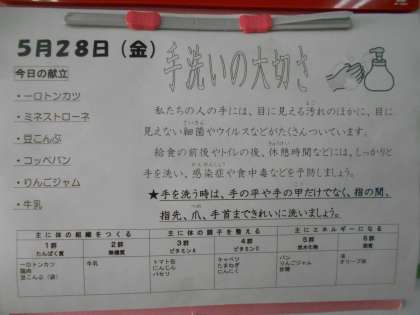 5月28日（金）
手洗いの大切さ
今日の献立
・一口トンカツ
・ミネストローネ
・豆こんぶ
・コッペパン
・りんごジャム
・牛乳
私たちの人の手には、目に見える汚れのほかに、目に
見えない細菌やウイルスなどがたくさんついています。
給食の前後やトイレの後、休憩時間などには、しっかりと
手を洗い、感染症や食中毒などを予防しましょう。
★手を洗う時は、手の平や手の甲だけでなく、指の間、
指先、爪、手首まできれいに洗いましょう。
主に体の組織をつくる 主に体の調子を整える 主にエネルギーになる
1群 2群 3群 4群 5群 6群
たんぱく質 無機質 ビタミンA ビタミンC 炭水化物 脂質
一口トンカツ 牛乳 トマト缶 キャベツ パン 油
鶏肉 にんじん たまねぎ りんごジャム オリーブ油
豆こんぶ（袋） パセリ にんにく 砂糖